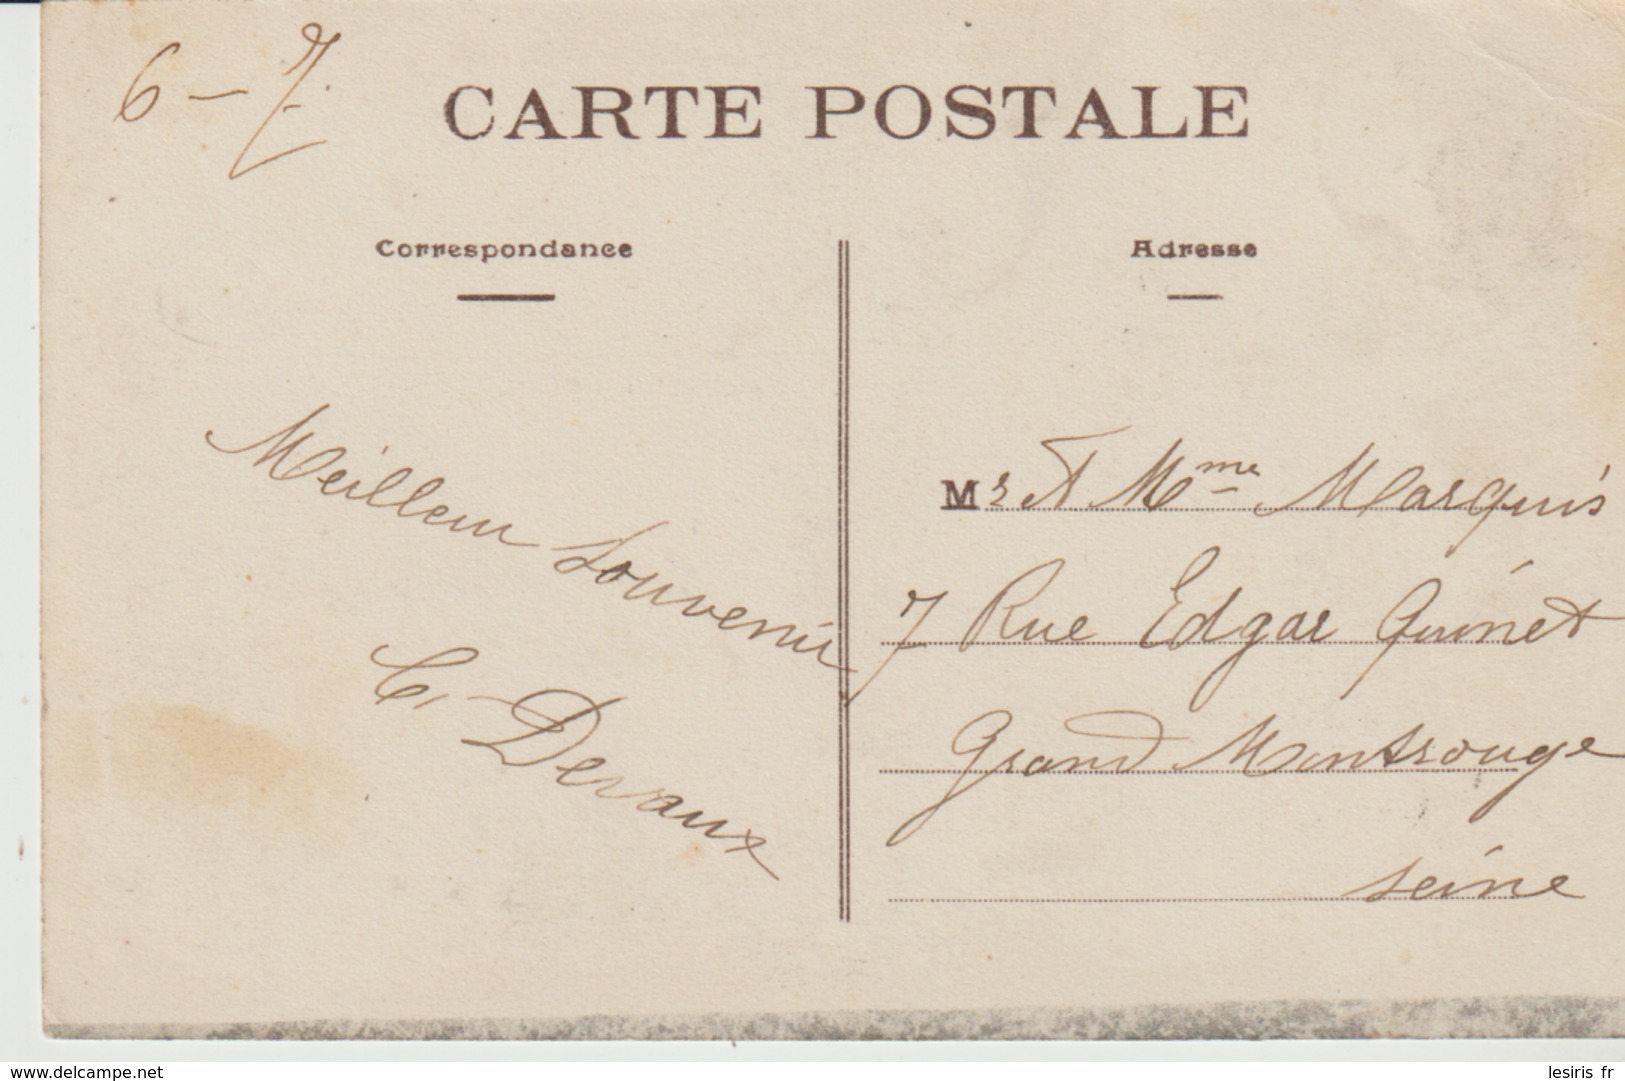 6 - 7
CARTE POSTALE
Correspondance
Adresse
Meilleur Souvenir
C. Devaux
Mr et Mme Marquis
7 Rue Edgar Quinet
Grand Montrouge
Seine
www.delcampe.net
lesiris fr